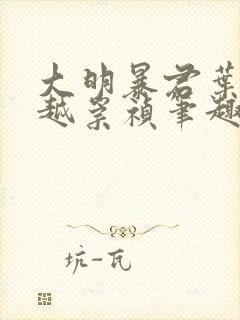 大明暴君葉
越崇禎筆趣
坑-瓦